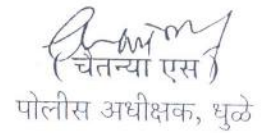 ( चैतन्या एस )
पोलीस अधीक्षक, धुळे